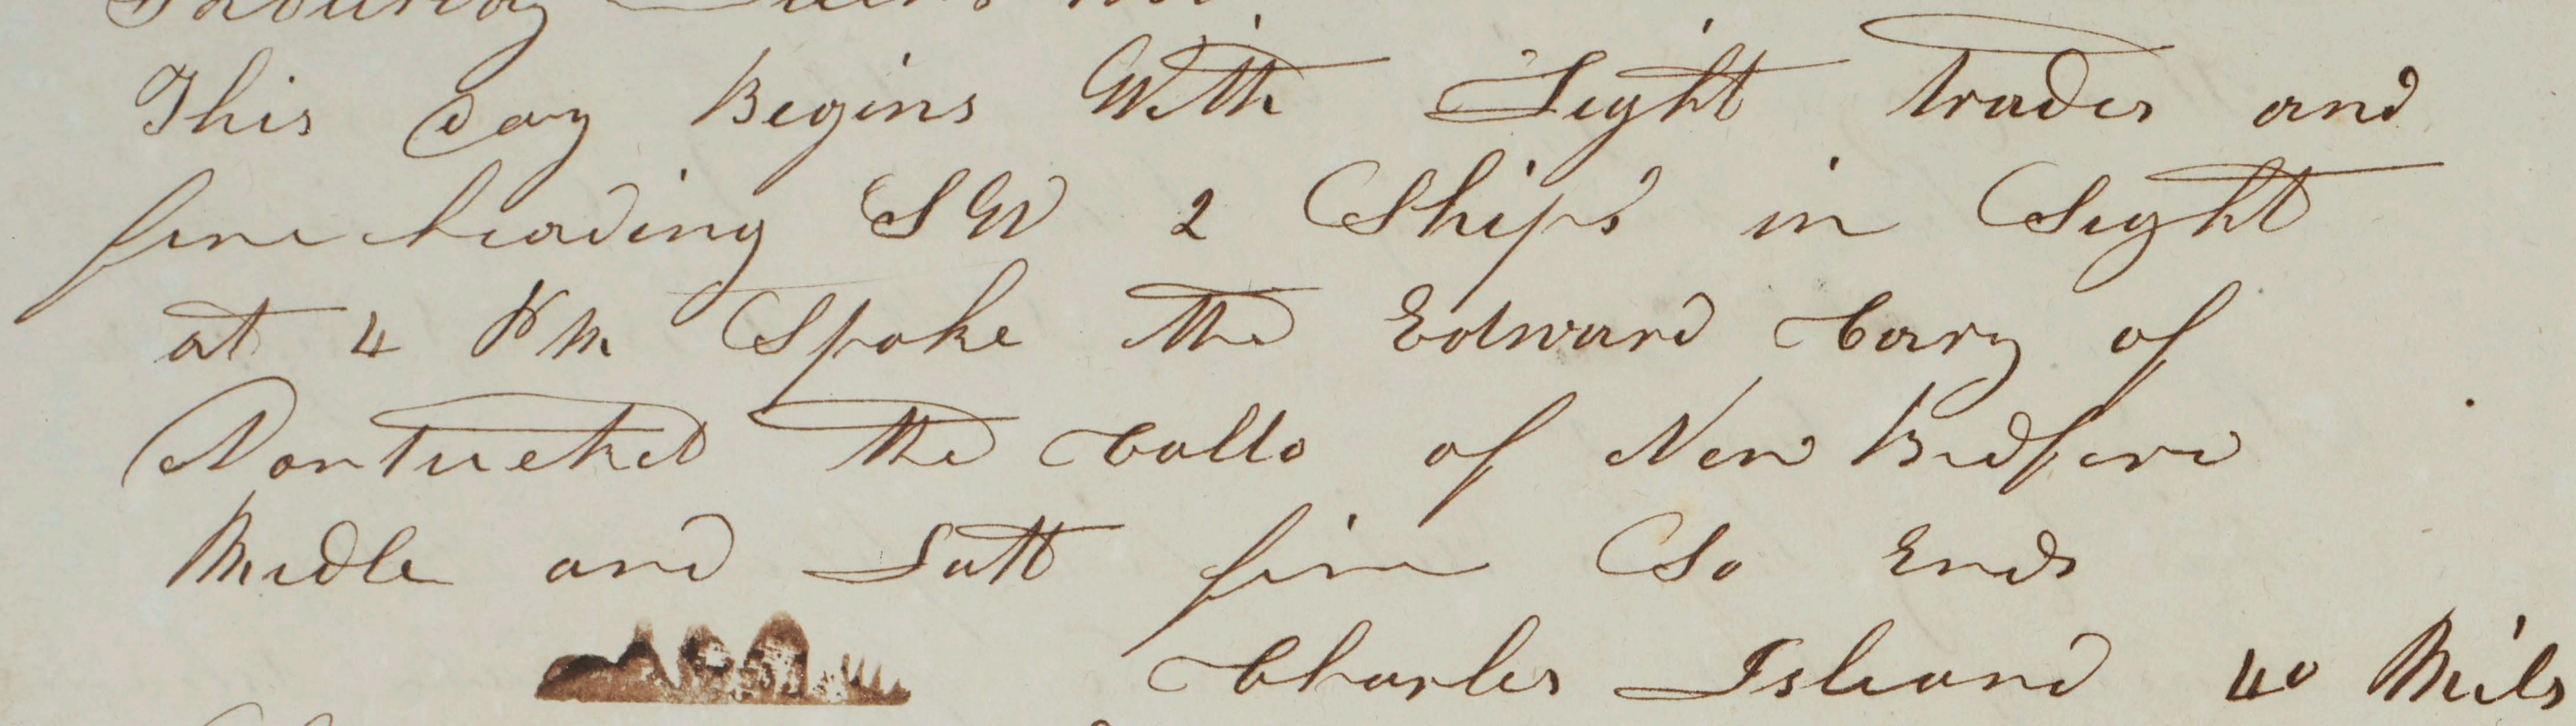 This day Begins With Light trades and
fine heading SW 2 Ships in Sight
at 4 PM Spoke the Edward Cary of
Nantucket the Callo of New Bedford
Midle and Latt fine So Ends
Charles Island 40 Mils